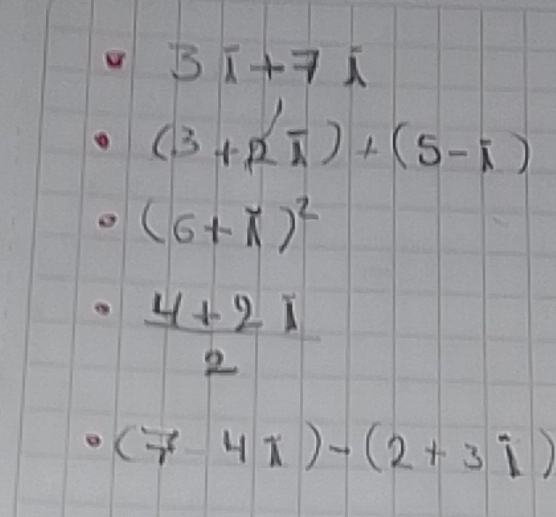 • 3i + 7i
• (3 + 2i) + (5 - i)
• (6 + i)²
• 4 + 2i
2
• (7 - 4i) - (2 + 3i)